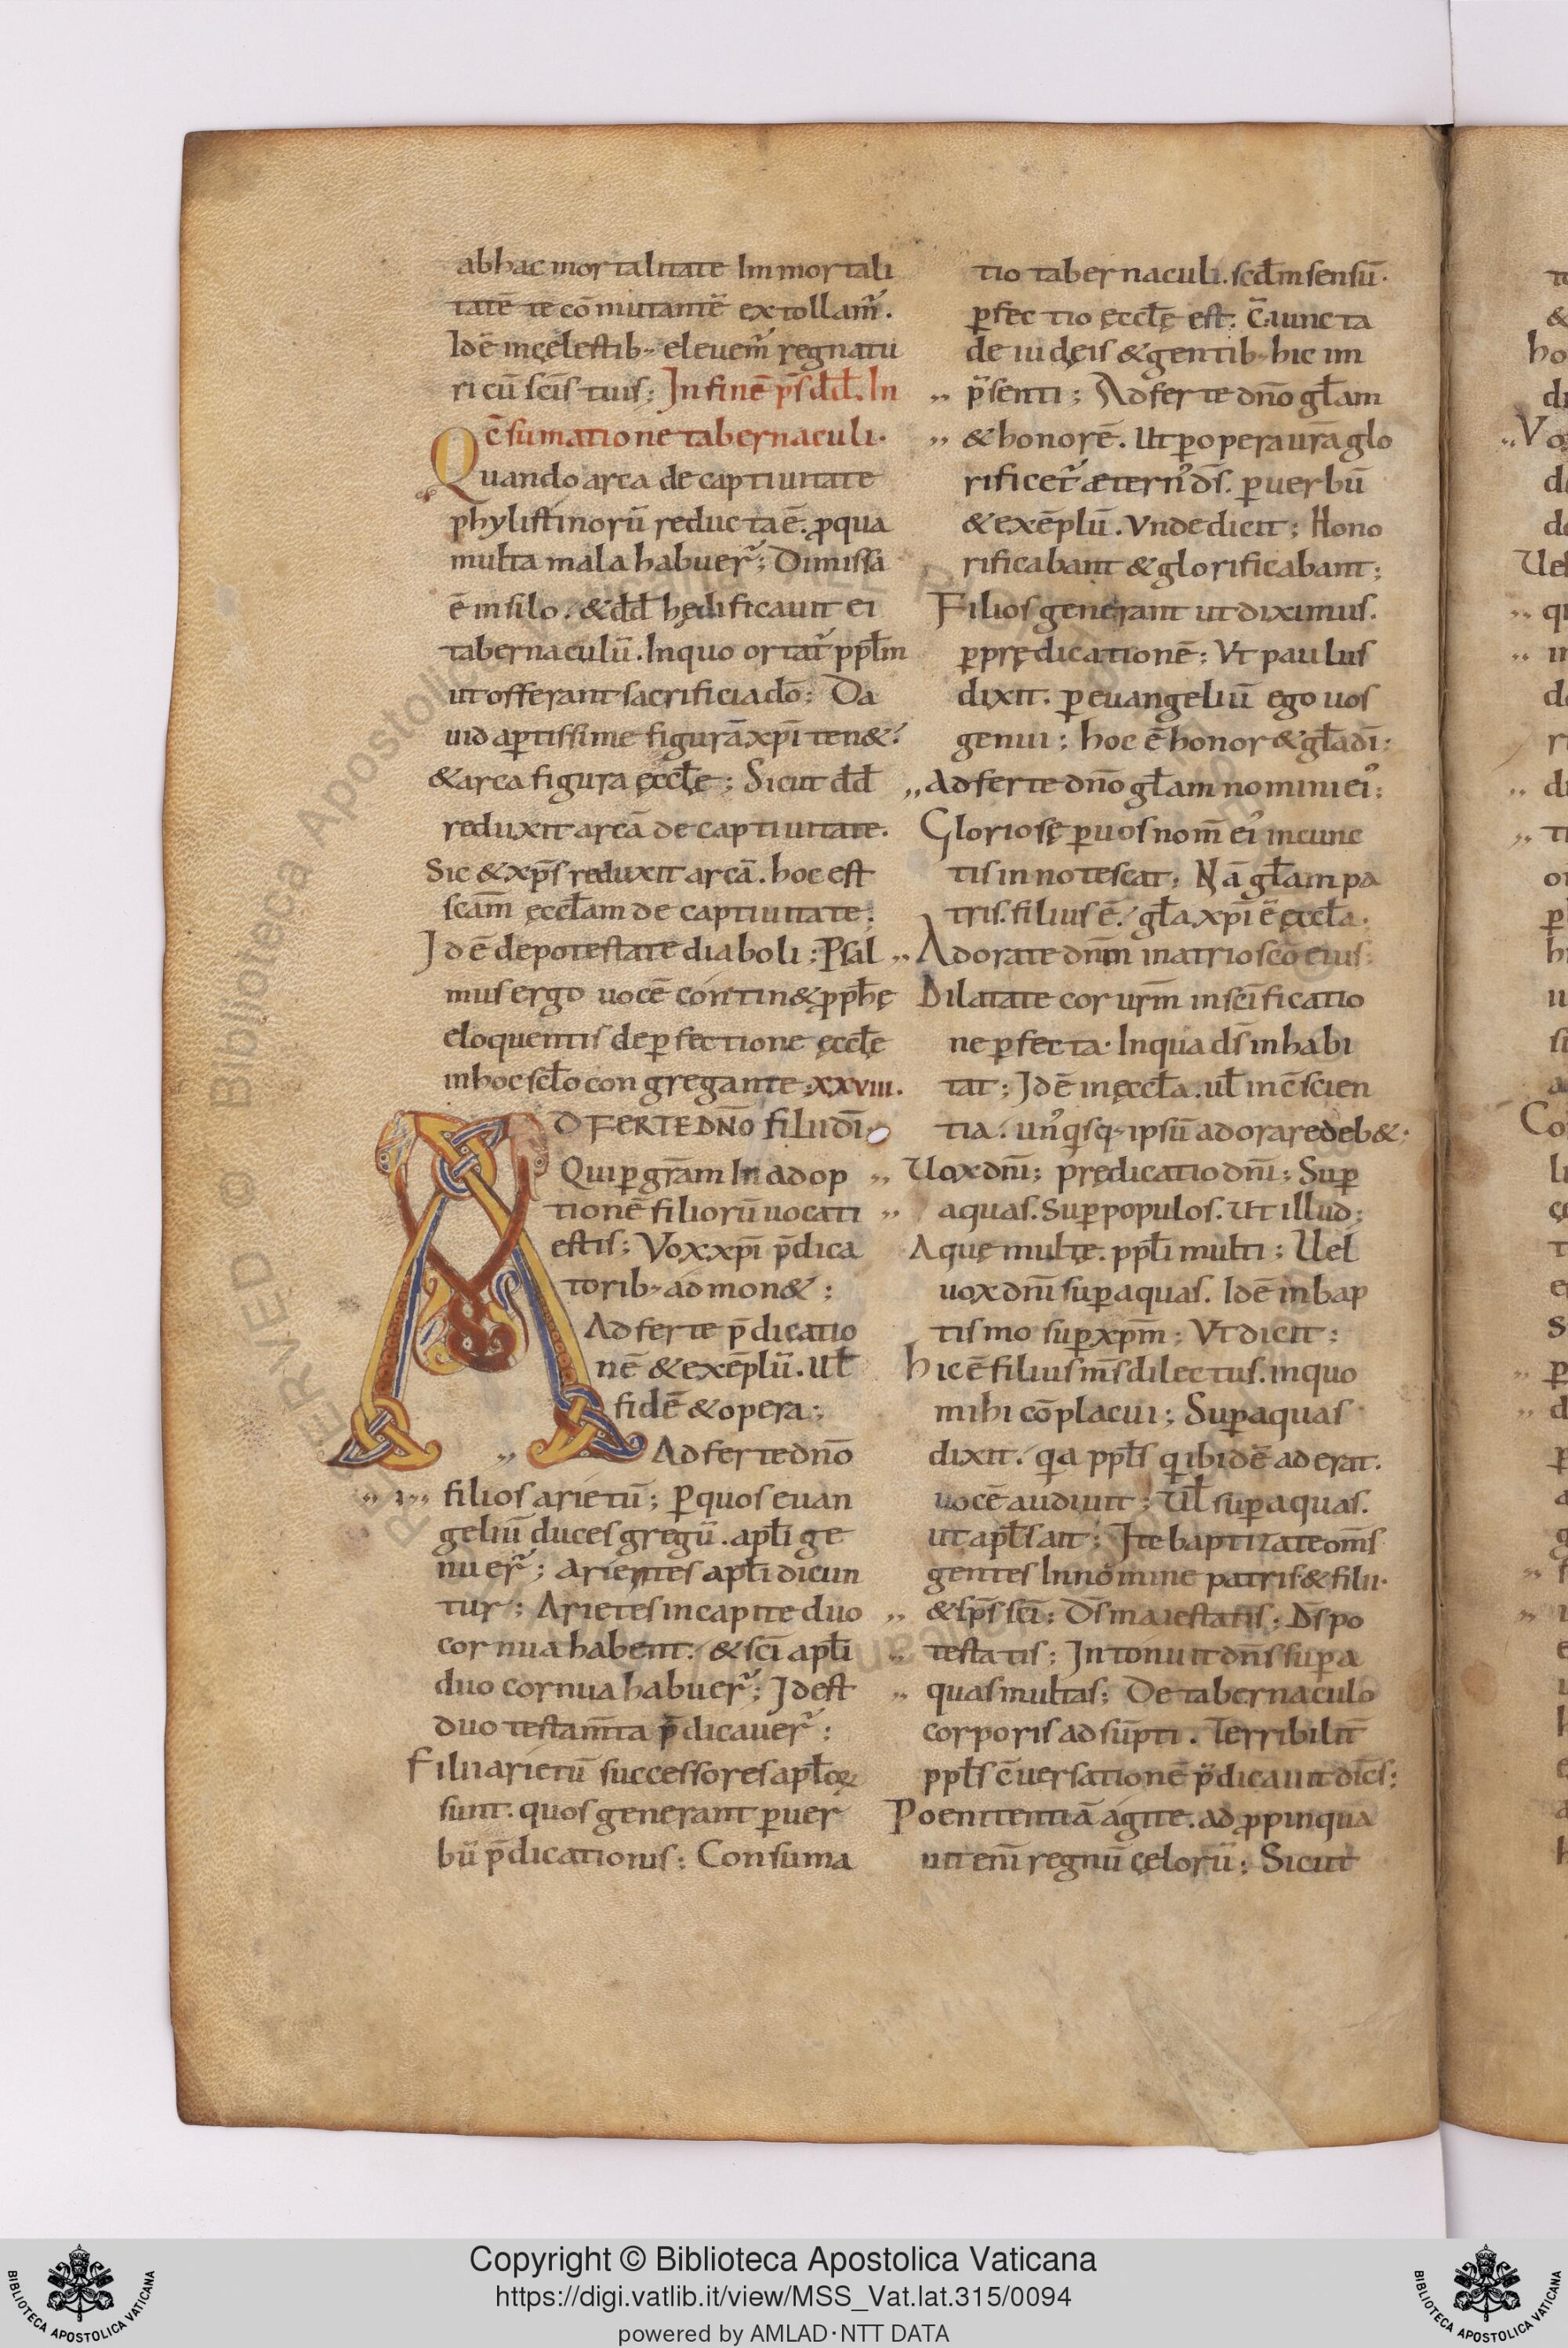 abhac mortalitate Immortali
tatē te cōmutantē extollam᷑.
Idē incęlestib; eleuem᷑ regnatu
ri cū sc̄is tuis; In finē ps̄ dd̄. In
c̄sumatione tabernaculi.
Quando arca de captiuitate
phylistinorū reducta ē. ꝓqua
multa mala habuer᷑; Dimissa
ē in silo. & dd̄ hędificauit ei
tabernaculū. Inquo ortat᷑ ppl̄m
ut offerant sacrificia dō; Da
uid aptissime figurā xpī ten&.
& arca figura ęccl̄ę; Sicut dd̄
reduxit arcā de captiuitate.
Sic & xps̄ reduxit arcā. hoc est
scam̄ ęccl̄am de captiuitate;
Id ē depotestate diaboli; Psal
mus ergo uocē contin& ꝓph̄ę
eloquentis de ꝑfectione ęccl̄ę
inhoc scl̄o congregante; xxviii.
ADFERTE DN̄O filii dī.
Qui ꝑ gr̄am In adop
tionē filiorū uocati
estis; Vox xpī p̄dica
torib; admon&;
Adferte p̄dicatio
nē & exēplū. Ul̄
fidē & opera;
Adferte dn̄o
filios arietū; Ꝑ quos euan
geliū duces gregū. apl̄i ge
nuer᷑; Arientes apl̄i dicun
tur; Arietes incapite duo
cornua habent. & sc̄i apl̄i
duo cornua habuer᷑; Id est
duo testam̄ta p̄dicauer᷑;
Filii arietū successores apl̄oꝝ
sunt. quos generant ꝑ uer
bū p̄dicationis; Consuma
tio tabernaculi. scd̄m sensū.
ꝑfectio ęccl̄ę est; C̄iuncta
de iudęis & gentib; hic im
p̄senti; Adferte dn̄o gl̄am
& honorē. Ut ꝑ opera ur̄a glo
rificet᷑ ætern᾿ ds̄. ꝑ uerbū
& exēplū. Vnde dicit; Hono
rificabant & glorificabant;
Filios generant ut diximus.
ꝑ prędicationē; Vt paulus
dixit. ꝑ euangeliū ego uos
genui; hoc ē honor & gl̄a dī;
Adferte dn̄o gl̄am nomini ei᾿;
Gloriosę ꝑ uos nom̄ ei᾿ incunc
tis innotescat; Nā gl̄am pa
tris. filius ē. gl̄a xpī ē ęccl̄a.
Adorate dn̄m in atrio sc̄o eius;
Dilatate cor urm̄ in sc̄ificatio
ne ꝑfecta. Inqua ds̄ inhabi
tat; Id ē in ęccl̄a. ul̄ in c̄scien
tia. un᾿qisq; ipsū adorare deb&;
Uox dnī; prędicatio dnī; Suꝑ
aquas. Suꝑ populos. Ut illud;
Aquę multę. ppl̄i multi; Uel
uox dnī suꝑ aquas. Id ē in bap
tismo suꝑ xpm̄; Vt dicit;
hic ē filius m̄s dilectus. inquo
mihi cōplacui; Suꝑ aquas
dixit. qa ppl̄s q ibidē aderat.
uocē audiuit; Ul̄ suꝑ aquas.
ut apl̄s ait; Ite baptizate om̄s
gentes Innomine patris & filii.
& sps̄ sc̄i; Ds̄ maiestatis; Ds̄ po
testatis; Intonuit dn̄s suꝑ a
quas multas; De tabernaculo
corporis adsūpti. Terribilit̄
ppl̄s c̄uersationē p̄dicauit dīcs;
Poenitentiā agite. adꝓpinqua
uit enī regnū cęlorū; Sicut
Copyright © Biblioteca Apostolica Vaticana
https://digi.vatlib.it/view/MSS_Vat.lat.315/0094
powered by AMLAD·NTT DATA
BIBLIOTECA APOSTOLICA VATICANA
BIBLIOTECA APOSTOLICA VATICANA